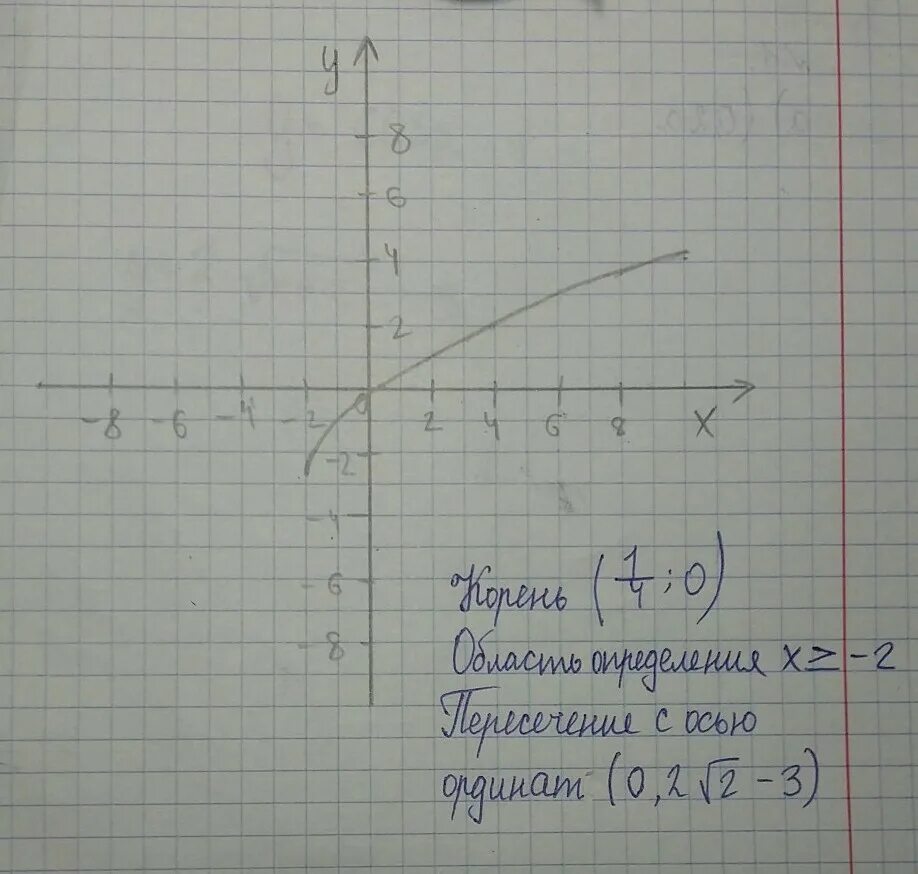 y
8
6
4
2
-8 -6 -4 -2 0 2 4 6 8 x
-2
-4
-6
-8
Корень (1/4; 0)
Область определения x ≥ -2
Пересечение с осью
ординат (0, 2√2 - 3)